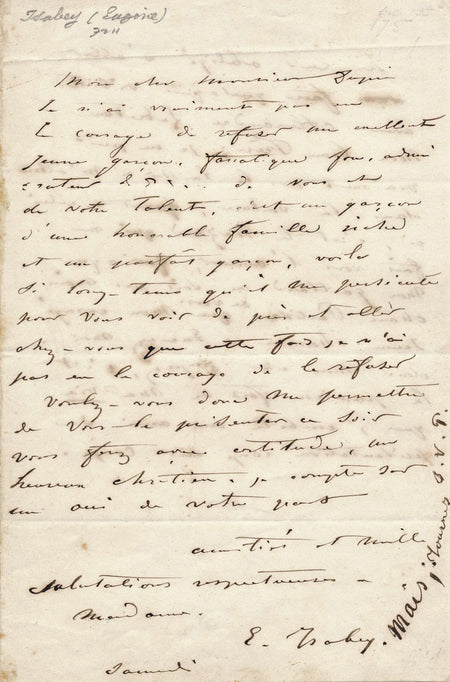 Isabey (Eugène)
Mon cher Monsieur Dupin
Je n'ai vraiment pas eu
le courage de refuser un excellent
jeune garçon, fanatique fou, admi
rateur de vous et
de votre talent, c'est un garçon
d'une honorable famille riche
et un parfait garçon, voilà
si long-tems qu'il me persécute
pour vous voir de près et aller
chez-vous que cette fois je n'ai
pas eu le courage de le refuser
Voulez-vous donc me permettre
de vous le présenter ce soir
vous ferez avec certitude, un
heureux chrétien. je compte sur
un oui de votre part
amitiés et mille
salutations respectueuses a
Madame.
E. Isabey.
Samedi
Mais, tournez S. V. P.